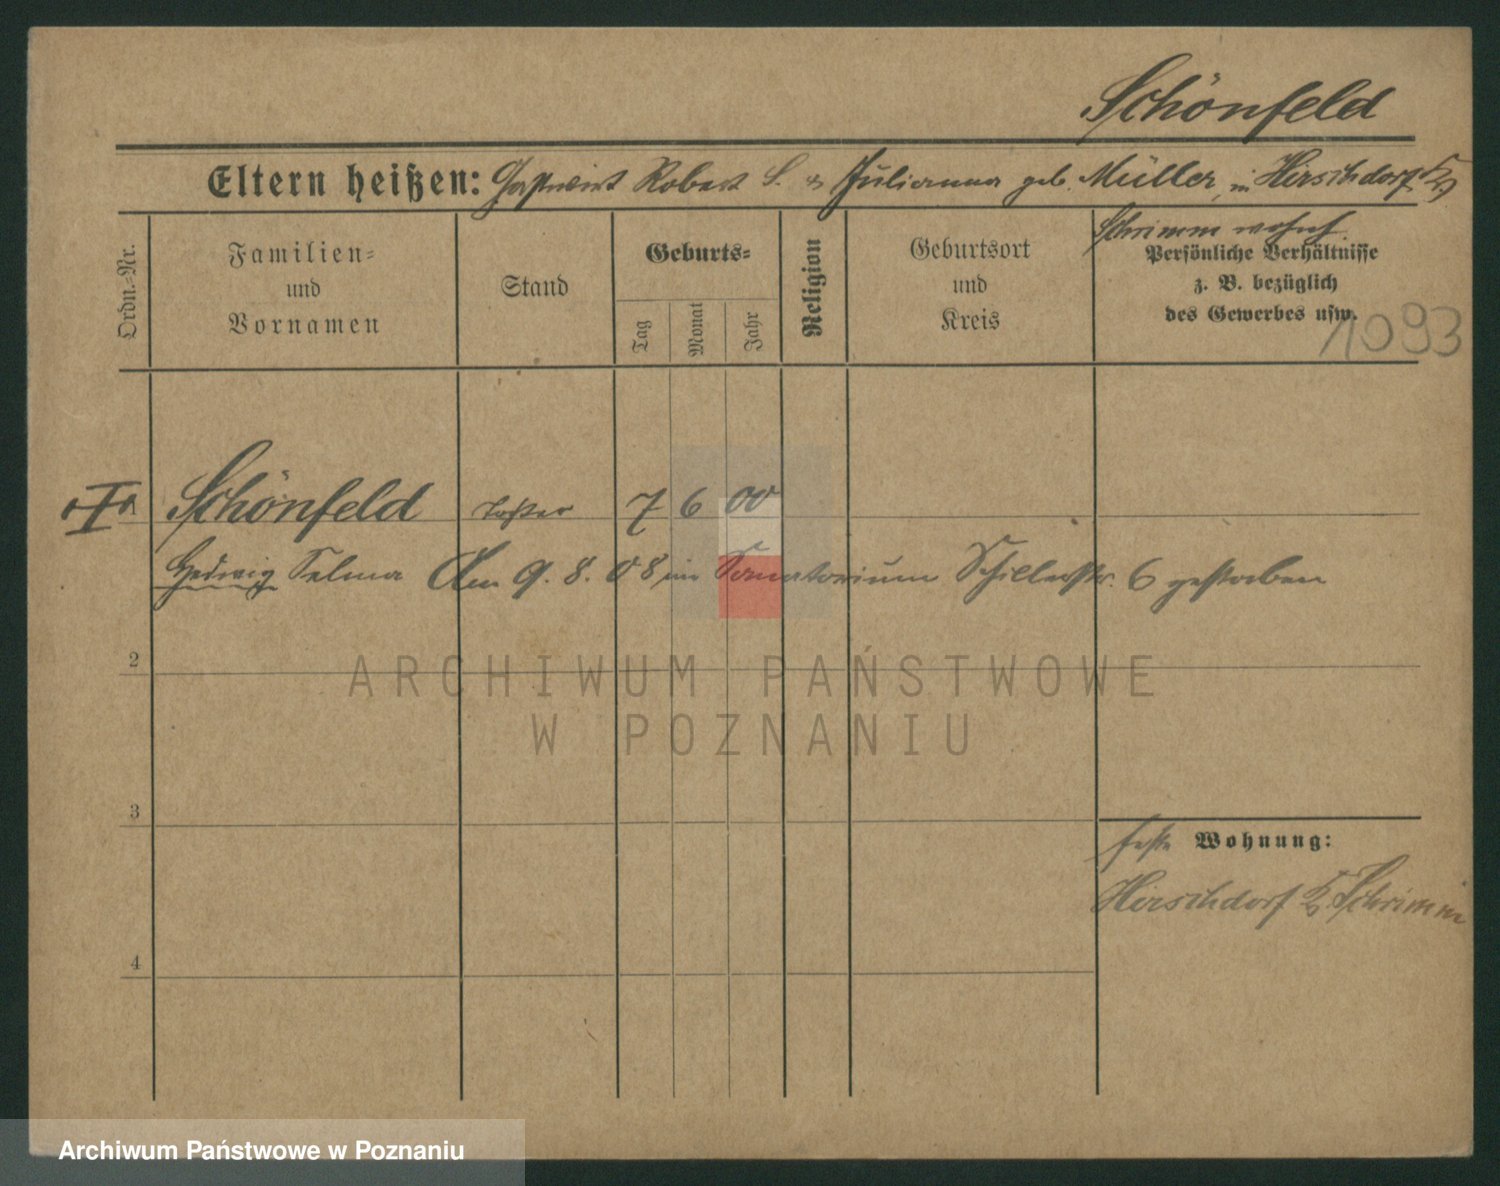 Schönfeld
Eltern heißen: Gastwirt Robert S. & Julianna geb. Müller, in Hirschdorf Kr.
Schrimm wohnh.
Ordn.-Nr.
Familien-
und
Vornamen
Stand
Geburts-
Tag
Monat
Jahr
Religion
Geburtsort
und
Kreis
Persönliche Verhältnisse
z. B. bezüglich
des Gewerbes usw.
1093
I
Schönfeld Tochter 7 6 00
Hedwig Selma Am 9. 8. 08 im Sanatorium Schillerstr. 6 gestorben
2
3
4
feste Wohnung:
Hirschdorf Kr. Schrimm
ARCHIWUM PAŃSTWOWE
W POZNANIU
Archiwum Państwowe w Poznaniu